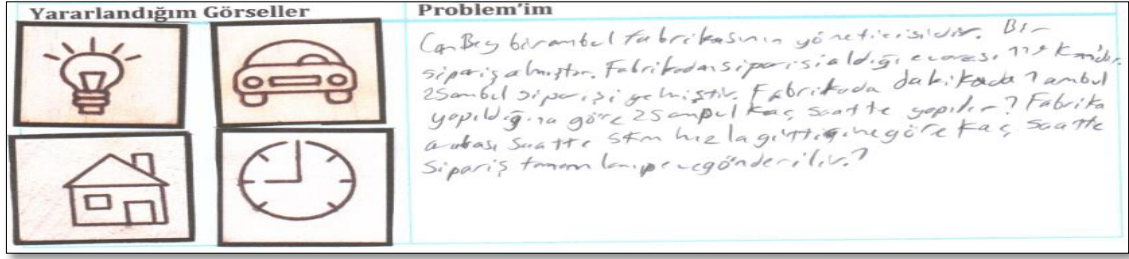 Yararlandığım Görseller
Problem'im
Can Bey bir ambul fabrikasının yöneticisidir. Bir
sipariş almıştır. Fabrikadan siparişi aldığı eve arası 115 km'dir.
25 ambul siparişi gelmiştir. Fabrikada dakikada 1 ambul
yapıldığına göre 25 ampul kaç saatte yapılır? Fabrika
arabası saatte 5km hızla gittiğine göre kaç saatte
sipariş tamamlanıp eve gönderilir?